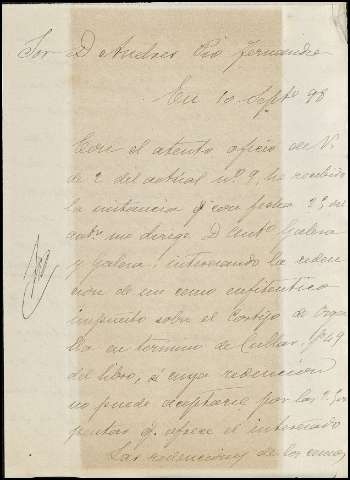 Sor D Andres Pio Fernandez
En 10 Septe 98
Con el atento oficio de V.
de 2 del actual nº 9, he recibido
la instancia q con fecha
me dirige D Antº Galera
y Galera, interesando la reden
ción de un censo enfiteutico
impuesto sobre el Cortijo de
en termino de Cullar, nº 49
del libro, á cuya redencion
no puede aceptarse por las
pesetas q. ofrece el interesado
Las redenciones de los censos